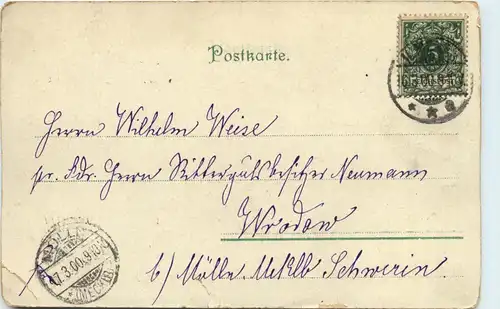 Postkarte.
5
Herrn Wilhelm Weise
pr. Adr. Herrn Rittergutsbesitzer Neumann
Wrodow
b/ Mölln. Meklb Schwerin.
MÖLLN
17.3.00.9-10V
*(MECKLB)